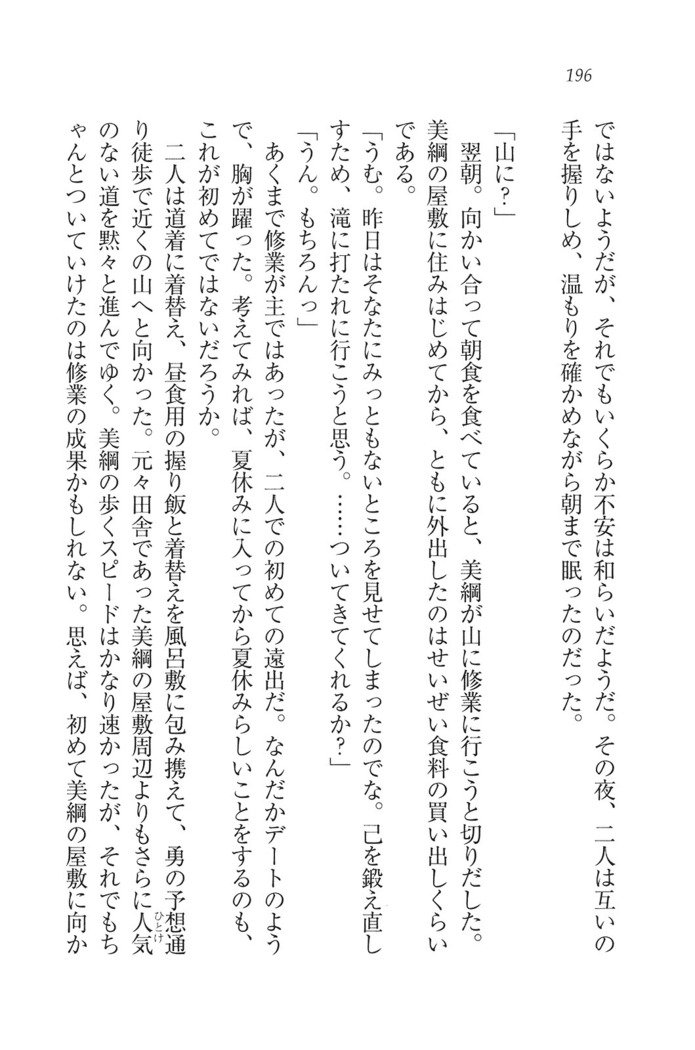 196
ではないようだが、それでもいくらか不安は和らいだようだ。その夜、二人は互いの
手を握りしめ、温もりを確かめながら朝まで眠ったのだった。
「山に？」
翌朝。向かい合って朝食を食べていると、美綱が山に修業に行こうと切りだした。
美綱の屋敷に住みはじめてから、ともに外出したのはせいぜい食料の買い出しくらい
である。
「うむ。昨日はそなたにみっともないところを見せてしまったのでな。己を鍛え直し
すため、滝に打たれに行こうと思う。……ついてきてくれるか？」
「うん。もちろんっ」
あくまで修業が主ではあったが、二人での初めての遠出だ。なんだかデートのよう
で、胸が躍った。考えてみれば、夏休みに入ってから夏休みらしいことをするのも、
これが初めてではないだろうか。
二人は道着に着替え、昼食用の握り飯と着替えを風呂敷に包み携えて、勇の予想通
り徒歩で近くの山へと向かった。元々田舎であった美綱の屋敷周辺よりもさらに人気
ひとけ
のない道を黙々と進んでゆく。美綱の歩くスピードはかなり速かったが、それでもち
ゃんとついていけたのは修業の成果かもしれない。思えば、初めて美綱の屋敷に向か